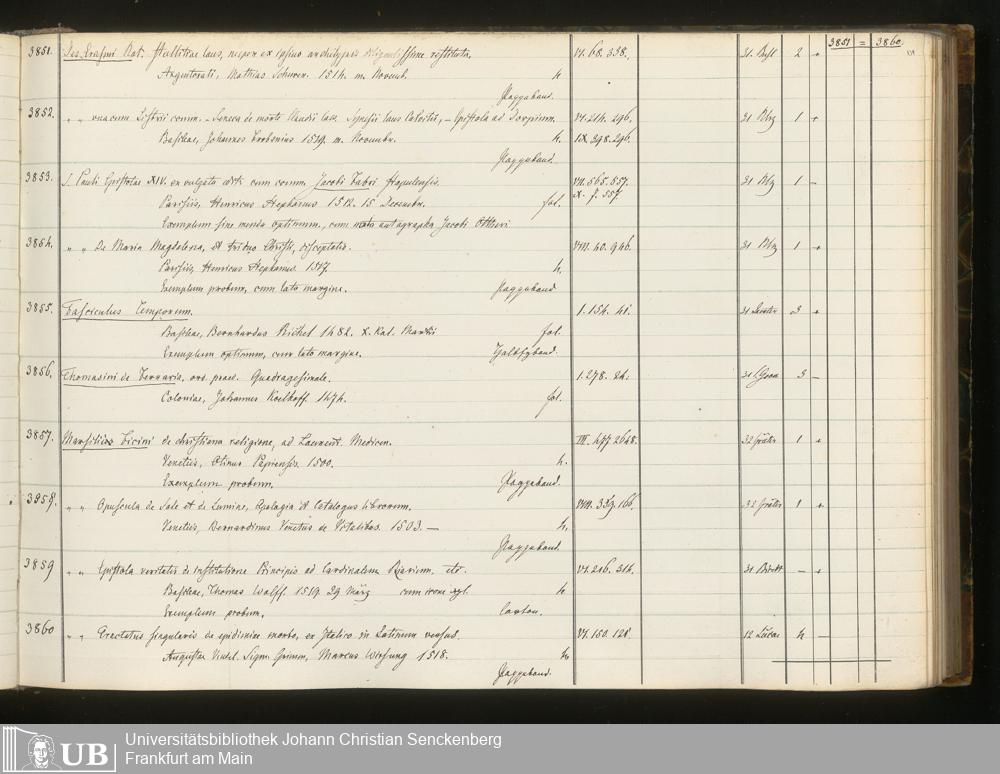 3851 = 3860.
3851. Des. Erasmi Rot. Stultitiae laus, nuper ex ipsius archetypis restituta. VI. 68. 338. 31. 2 +
Argentorati, Mathias Schurer. 1514. m. Novemb. 4.
Pappband.
3852. " " una cum Listrii comm. - Seneca de morte Claudii Synesii laus Calvitii, - Epistola ad Dorpium. VI. 214. 296. 31 1 +
Basileae, Johannes Frobenius 1519. m. Novembr. 4. IX. 398. 296.
Pappband.
3853. S. Pauli Epistolae XIV. ex vulgata cum comm. Jacobi Fabri Stapulensis. VIII. 565. 557. 31 1 -
Parisiis, Henricus Stephanus 1512. 15 Decembr. fol. X. f. 557.
Exemplum sine menda optimum, cum nota autographa Jacobi Ottheri
3854. " " De Maria Magdalena, et triduo Christi, disceptatio. VIII. 40. 946. 31 1 +
Parisiis, Henricus Stephanus. 1517. 4.
Exemplum probum, cum lato margine. Pappband
3855. Fasciculus Temporum. 1. 154. 41. 31 3 +
Basileae, Bernhardus Richel 1482. X. Kal. Martii fol.
Exemplum optimum, cum lato margine. Halbfzband.
3856. Thomasini de Ferraria, ord. praed. Quadragesimale. 1. 278. 24. 31 3 -
Coloniae, Johannes Koelhoff 1474. fol.
3857. Marsilius Ficini de christiana religione, ad Laurent. Medicem. III. 477 2648. 32 Gräter 1 +
Venetiis, Otinus Papiensis. 1500. 4.
Exemplum probum. Pappband.
3958. " " Opuscula de Sole et de Lumine, Apologia et Catalogus librorum. VIII. 389. 166. 32 Gräter 1 +
Venetiis, Bernardinus Venetus de Vitalibus. 1503. — 4.
Pappband.
3859 " " Epistola veritatis de Institutione Principis ad Cardinalem Riarium. etc. VI. 216. 314. 31 - +
Basileae, Thomas Wolff. 1519. 29 März cum icone xyl. 4
Exemplum probum. Carton.
3860 " " Tractatus singularis de epidimiae morbo, ex Italico in Latinum versus. VI. 150. 128. 12 4 -
Augustae Vindel. Sigm. Grimm, Marcus Wirsung 1518. 4.
Pappband.
UB
Universitätsbibliothek Johann Christian Senckenberg
Frankfurt am Main